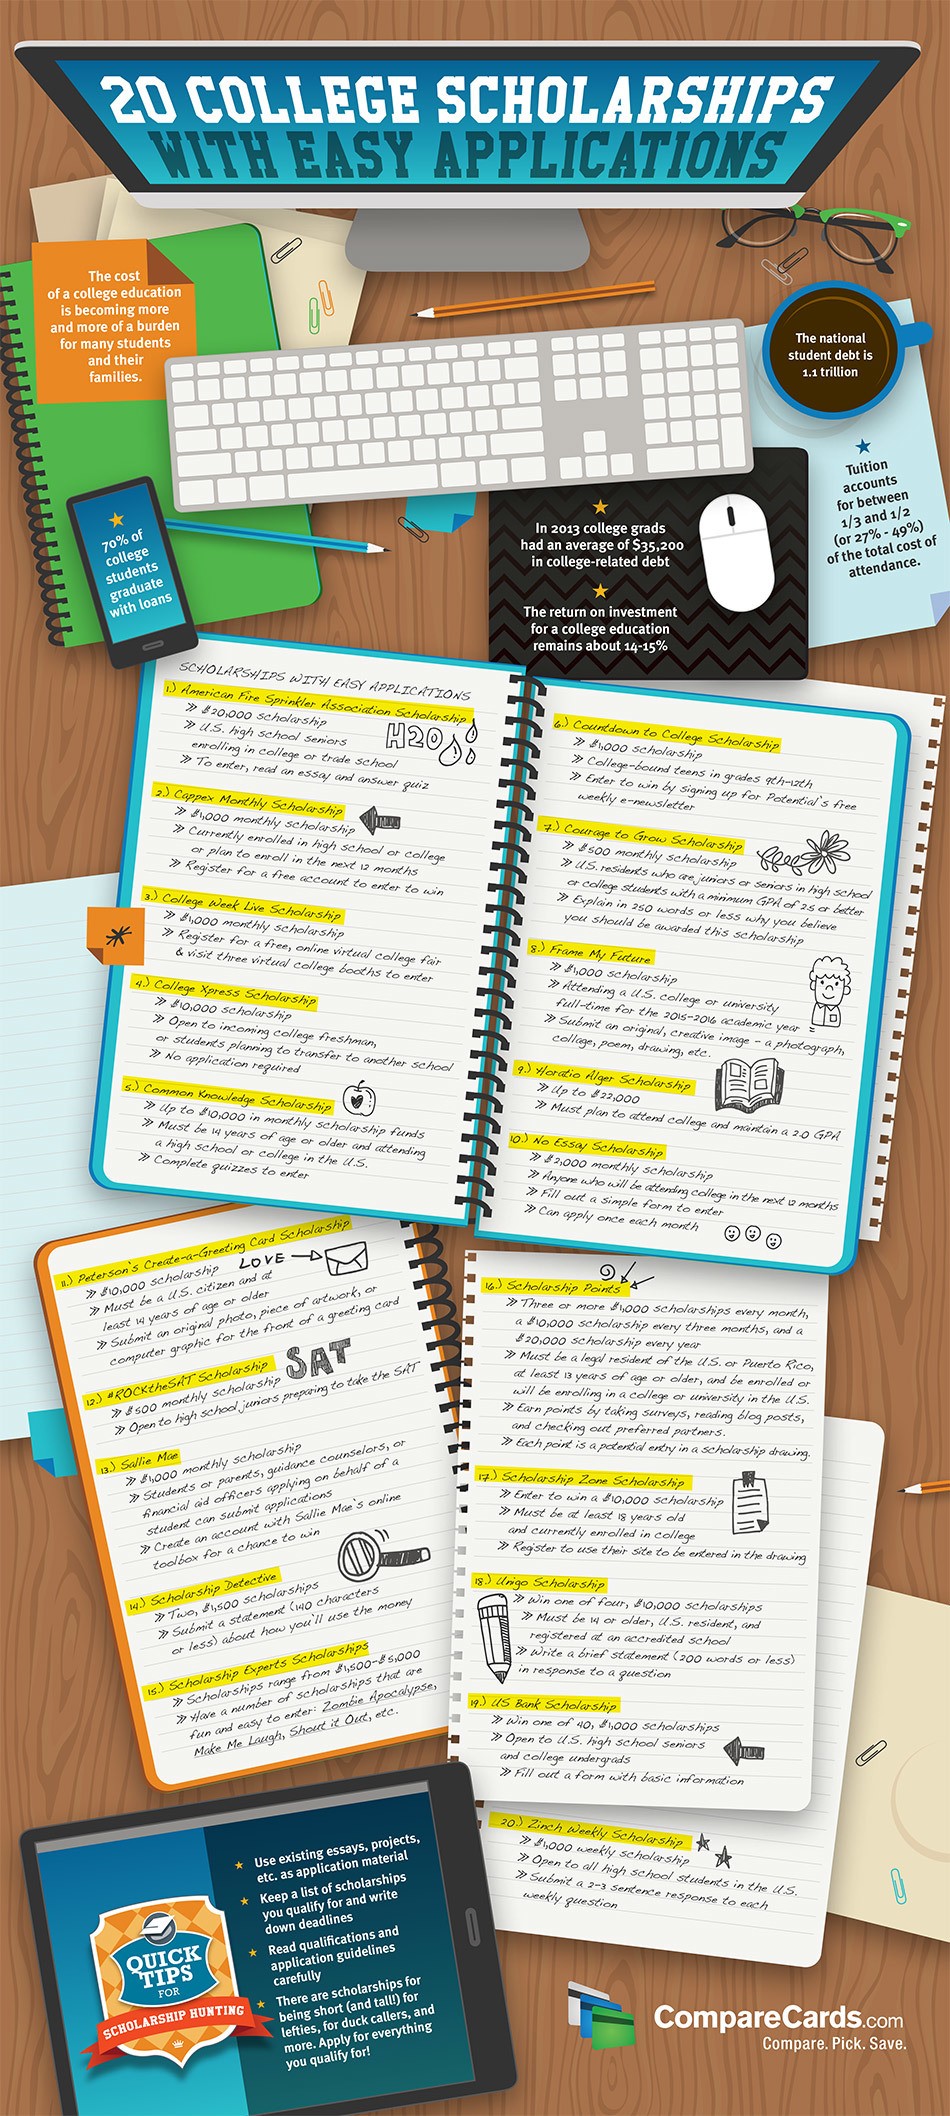 20 COLLEGE SCHOLARSHIPS
WITH EASY APPLICATIONS
The cost
of a college education
is becoming more
and more of a burden
for many students
and their
families.
The national
student debt is
1.1 trillion
Tuition
accounts
for between
1/3 and 1/2
(or 27% - 49%)
of the total cost of
attendance.
70% of
college
students
graduate
with loans
In 2013 college grads
had an average of $35,200
in college-related debt
The return on investment
for a college education
remains about 14-15%
SCHOLARSHIPS WITH EASY APPLICATIONS
1.) American Fire Sprinkler Association Scholarship
» $20,000 scholarship
» U.S. high school seniors
enrolling in college or trade school
» To enter, read an essay and answer quiz
H2O
2.) Cappex Monthly Scholarship
» $1,000 monthly scholarship
» Currently enrolled in high school or college
or plan to enroll in the next 12 months
» Register for a free account to enter to win
3.) College Week Live Scholarship
» $1,000 monthly scholarship
» Register for a free, online virtual college fair
& visit three virtual college booths to enter
4.) College Xpress Scholarship
» $10,000 scholarship
» Open to incoming college freshman,
or students planning to transfer to another school
» No application required
5.) Common Knowledge Scholarship
» Up to $10,000 in monthly scholarship funds
» Must be 14 years of age or older and attending
a high school or college in the U.S.
» Complete quizzes to enter
6.) Countdown to College Scholarship
» $1,000 scholarship
» College-bound teens in grades 9th-12th
» Enter to win by signing up for Potential's free
weekly e-newsletter
7.) Courage to Grow Scholarship
» $500 monthly scholarship
» U.S. residents who are juniors or seniors in high school
or college students with a minimum GPA of 2.5 or better
» Explain in 250 words or less why you believe
you should be awarded this scholarship
8.) Frame My Future
» $1,000 scholarship
» Attending a U.S. college or university
full-time for the 2015-2016 academic year
» Submit an original, creative image - a photograph,
collage, poem, drawing, etc.
9.) Horatio Alger Scholarship
» Up to $22,000
» Must plan to attend college and maintain a 2.0 GPA
10.) No Essay Scholarship
» $2,000 monthly scholarship
» Anyone who will be attending college in the next 12 months
» Fill out a simple form to enter
» Can apply once each month
11.) Peterson's Create-a-Greeting Card Scholarship
» $10,000 scholarship
» Must be a U.S. citizen and at
least 14 years of age or older
» Submit an original photo, piece of artwork, or
computer graphic for the front of a greeting card
LOVE
12.) #ROCKtheSAT Scholarship
» $500 monthly scholarship
» Open to high school juniors preparing to take the SAT
SAT
13.) Sallie Mae
» $1,000 monthly scholarship
» Students or parents, guidance counselors, or
financial aid officers applying on behalf of a
student can submit applications
» Create an account with Sallie Mae's online
toolbox for a chance to win
14.) Scholarship Detective
» Two, $1,500 scholarships
» Submit a statement (140 characters
or less) about how you'll use the money
15.) Scholarship Experts Scholarships
» Scholarships range from $1,500-$5,000
» Have a number of scholarships that are
fun and easy to enter: Zombie Apocalypse,
Make Me Laugh, Shout it Out, etc.
16.) Scholarship Points
» Three or more $1,000 scholarships every month,
a $10,000 scholarship every three months, and a
$20,000 scholarship every year
» Must be a legal resident of the U.S. or Puerto Rico,
at least 13 years of age or older, and be enrolled or
will be enrolling in a college or university in the U.S.
» Earn points by taking surveys, reading blog posts,
and checking out preferred partners.
» Each point is a potential entry in a scholarship drawing.
17.) Scholarship Zone Scholarship
» Enter to win a $10,000 scholarship
» Must be at least 18 years old
and currently enrolled in college
» Register to use their site to be entered in the drawing
18.) Unigo Scholarship
» Win one of four, $10,000 scholarships
» Must be 14 or older, U.S. resident, and
registered at an accredited school
» Write a brief statement (200 words or less)
in response to a question
19.) US Bank Scholarship
» Win one of 40, $1,000 scholarships
» Open to U.S. high school seniors
and college undergrads
» Fill out a form with basic information
20.) Zinch Weekly Scholarship
» $1,000 weekly scholarship
» Open to all high school students in the U.S.
» Submit a 2-3 sentence response to each
weekly question
QUICK
TIPS
FOR
SCHOLARSHIP HUNTING
Use existing essays, projects,
etc. as application material
Keep a list of scholarships
you qualify for and write
down deadlines
Read qualifications and
application guidelines
carefully
There are scholarships for
being short (and tall!) for
lefties, for duck callers, and
more. Apply for everything
you qualify for!
CompareCards.com
Compare. Pick. Save.